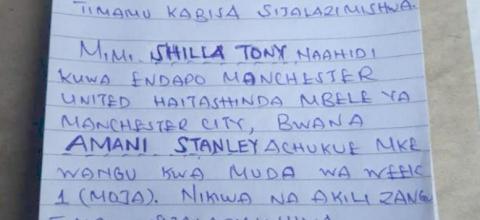 TIMAMU KABISA SIJALAZIMISHWA.
MIMI SHILLA TONY NAAHIDI
KUWA ENDAPO MANCHESTER
UNITED HAITASHINDA MBELE YA
MANCHESTER CITY, BWANA
AMANI STANLEY ACHUKUE MKE
WANGU KWA MUDA WA WEEK
1 (MOJA). NIKIWA NA AKILI ZANGU